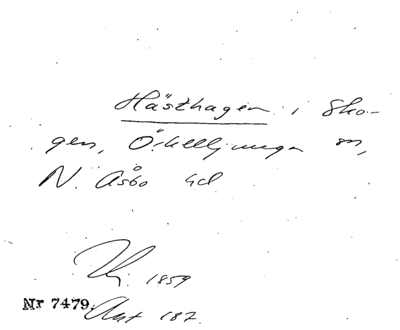 Hästhagen i Sko-
gen, Örkelljunga sn,
N. Åsbo hd
1859
Nr 7479. Akt 187.